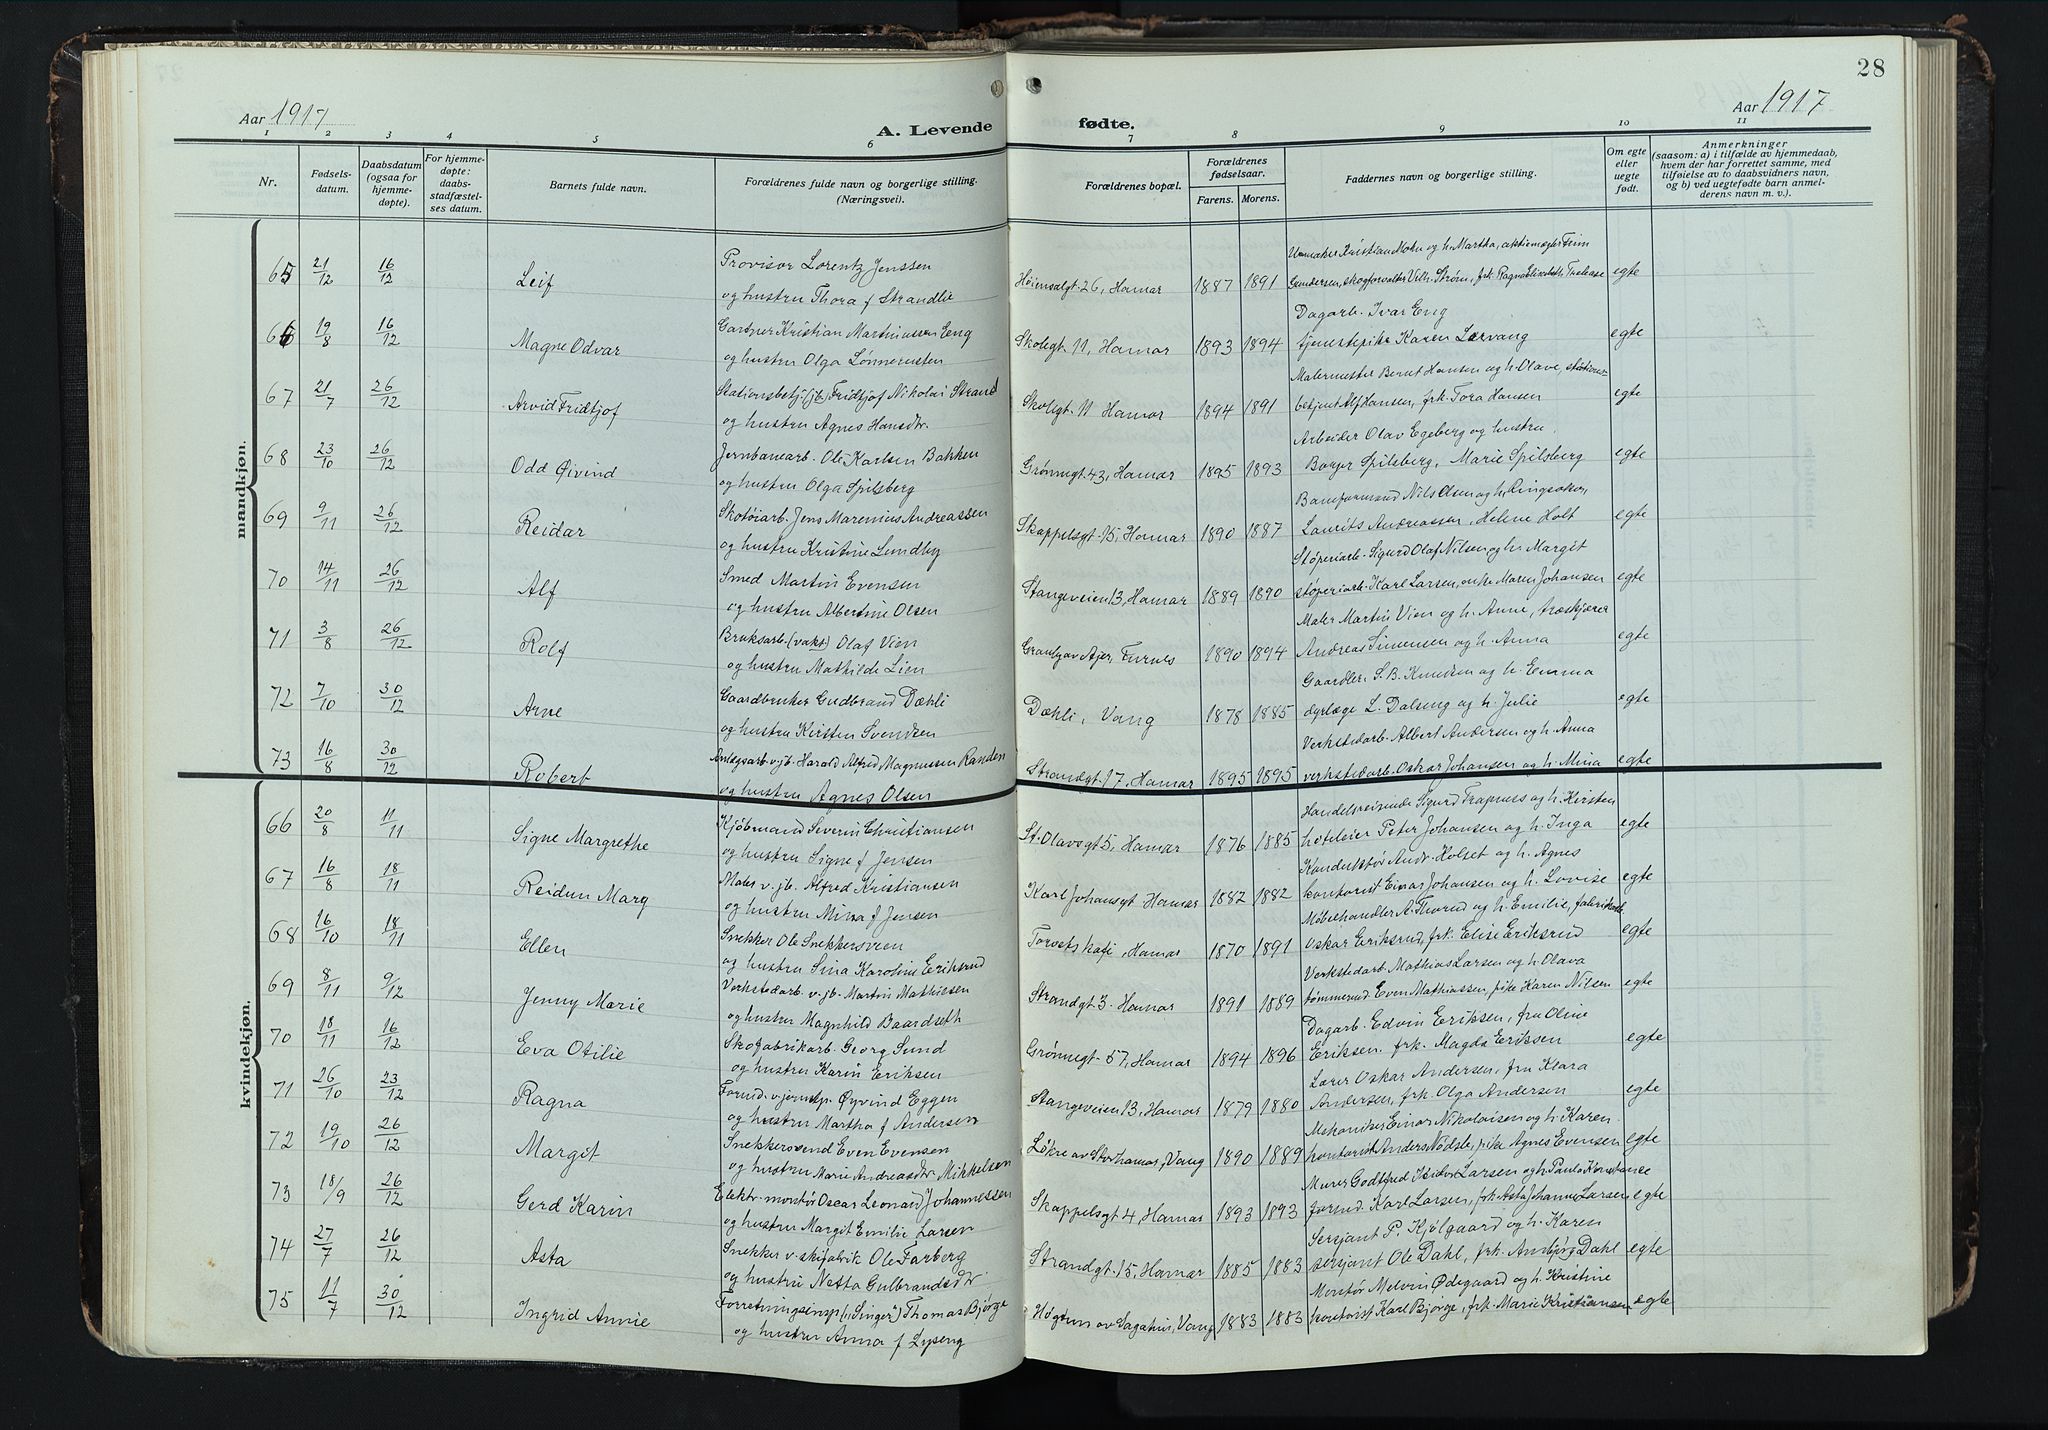 28
Aar 1917
Aar 1917
A. Levende
fødte.
1 2 3 4 5 6 7 8 9 10 11
Nr.
Fødsels-
datum.
Daabsdatum
(ogsaa for
hjemme-
døpte).
For hjemme-
døpte:
daabs-
stadfæstel-
ses datum.
Barnets fulde navn.
Forældrenes fulde navn og borgerlige stilling.
(Næringsvei).
Forældrenes bopæl.
Forældrenes
fødselsaar.
Farens. Morens.
Faddernes navn og borgerlige stilling.
Om egte
eller
uegte
født.
Anmerkninger
(saasom: a) i tilfælde av hjemmedaab,
hvem der har forrettet samme, med
tilføielse av to daabsvidners navn,
og b) ved uegtefødte barn anmel-
derens navn m. v.).
mandkjøn.
65 21/12 16/12 Leif Provisor Lorentz Jenssen
og hustru Thora f Strandlie
Høiensalgt. 26, Hamar 1887 1891 Urmaker Kristian Holm og h. Martha, aktiemægler Finn
Gundersen, skogforvalter Vilh. Strøm, frk. Ragna Elisabeth egte
66 19/8 16/12 Magne Odvar Gartner Kristian Martinussen Eng
og hustru Olga
Skolegt 11, Hamar 1893 1894 Dagarb. Ivar Eng
tjenestepike Karen Lervang egte
67 21/7 26/12 Arvid Fridtjof Stationsbetj. (jb) Fridtjof Nikolai Strand
og hustru Agnes Hansdtr.
Skolegt. 11 Hamar 1894 1891 Malermester Bernt Hansen og h. Olave, stations-
betjent Alf Hansen, frk. Tora Hansen egte
68 23/10 26/12 Odd Øivind Jernbanearb. Ole Karlsen Bakken
og hustru Olga Spilsberg
Grønnegt. 43, Hamar 1895 1893 Arbeider Olav Egeberg og hustru
Borger Spilsberg, Marie Spilsberg egte
69 9/11 26/12 Reidar Skotøiarb. Jens Marenius Andreassen
og hustru Kristine Lundby
Skappelsgt. 15, Hamar 1890 1887 Baneformand Nils Olsen og h. Ringsaker,
Laurits Andreassen, Helene Holt egte
70 14/11 26/12 Alf Smed Martin Evensen
og hustru Albertine Olsen
Stangeveien 13, Hamar 1889 1890 Støperiarb. Sigurd Olaf Nilsen og h. Margit
støperiarb. Karl Larsen, enke Maren Johansen egte
71 3/8 26/12 Rolf Bruksarb. (vakt) Olaf Vien
og hustru Mathilde Lien
Granly av Ajer, Furnes 1890 1894 Maler Martin Vien og h. Anne, træskjærer
Andreas Simensen og h. Anna egte
72 7/10 30/12 Arne Gaardbruker Gudbrand Dæhli
og hustru Kirsten Svendsen
Dæhli, Vang 1878 1885 Gaardbr. S. B. Knudsen og h. Emma
dyrlæge L. Dalseng og h. Julie egte
73 16/8 30/12 Robert Anlægsarb. v. jb. Harald Alfred Magnussen Randen
og hustru Agnes Olsen
Strandgt. 17, Hamar 1895 1895 Verkstedarb. Albert Andersen og h. Anna
verkstedarb. Oskar Johansen og h. Mina egte
kvindekjøn.
66 20/8 11/11 Signe Margrethe Kjøbmand Severin Christiansen
og hustru Signe f Jensen
St. Olavsgt 5, Hamar 1876 1885 Handelsreisende Sigurd Trapness og h. Kirsten
hoteleier Peter Johansen og h. Inga egte
67 16/8 18/11 Reidun Marg Maler v. jb. Alfred Kristiansen
og hustru Mina f Jensen
Karl Johansgt Hamar 1882 1882 Konduktør Andr. Holset og h. Agnes
kontorist Einar Johansen og h. Lovise egte
68 16/10 18/11 Ellen Snekker Ole Snekkersveen
og hustru Sina Karoline Eriksrud
Torvets kafe, Hamar 1870 1891 Møbelhandler A. Thorud og h. Emilie,
Oskar Eriksrud, frk. Elise Eriksrud egte
69 8/11 9/12 Jenny Marie Verkstedarb. v. jb. Martin Mathiesen
og hustru Magnhild Baardseth
Strandgt 3. Hamar 1891 1889 Verkstedarb. Mathias Larsen og h. Olava
tømmermd Even Mathiassen, pike Karen Nilsen egte
70 18/11 16/12 Eva Otilie Skofabrikarb. Georg Sund
og hustru Karin Eriksen
Grønnegt. 57, Hamar 1894 1896 Dagarb. Edvin Eriksen, fru Oline
Eriksen. frk. Magda Eriksen egte
71 26/10 23/12 Ragna Formd. v. jernstøp Øyvind Eggen
og hustru Martha f Andersen
Stangeveien 13, Hamar 1879 1880 Lærer Oskar Andersen, fru Klara
Andersen, frk. Olga Andersen egte
72 19/10 26/12 Margit Snekkersvend Even Evensen
og hustru Marie Andreasdtr Mikkelsen
Løkre av Storhamar, Vang 1890 1889 Mekaniker Einar Nikolaisen og h. Karen
kontorist Anders Nødsle, pike Agnes Evensen egte
73 18/9 26/12 Gerd Karin Elektr. montør Oscar Leonard Johannessen
og hustru Margit Emilie Larsen
Skappelsgt 4, Hamar 1893 1893 Murer Godtfred Isidor Larsen og h. Paula Konstance
formd. Karl Larsen, frk. Asta Johanne Larsen egte
74 27/7 26/12 Asta Snekker v. skifabrik Ole Farberg
og hustru Netta Gulbrandsdtr
Strandgt. 15, Hamar 1885 1883 Sersjant P. Kjølgaard og h. Karen
sersjant Ole Dahl, frk. Anbjørg Dahl egte
75 11/7 30/12 Ingrid Annie Forretningsinsp. ("Singer") Thomas Bjørge
og hustru Anna f Lyseng
Høgtun av Sagatun, Vang 1883 1883 Montør Melvin Ødegaard og h. Kristine
kontorist Karl Bjørge, frk. Marie Kristiansen egte